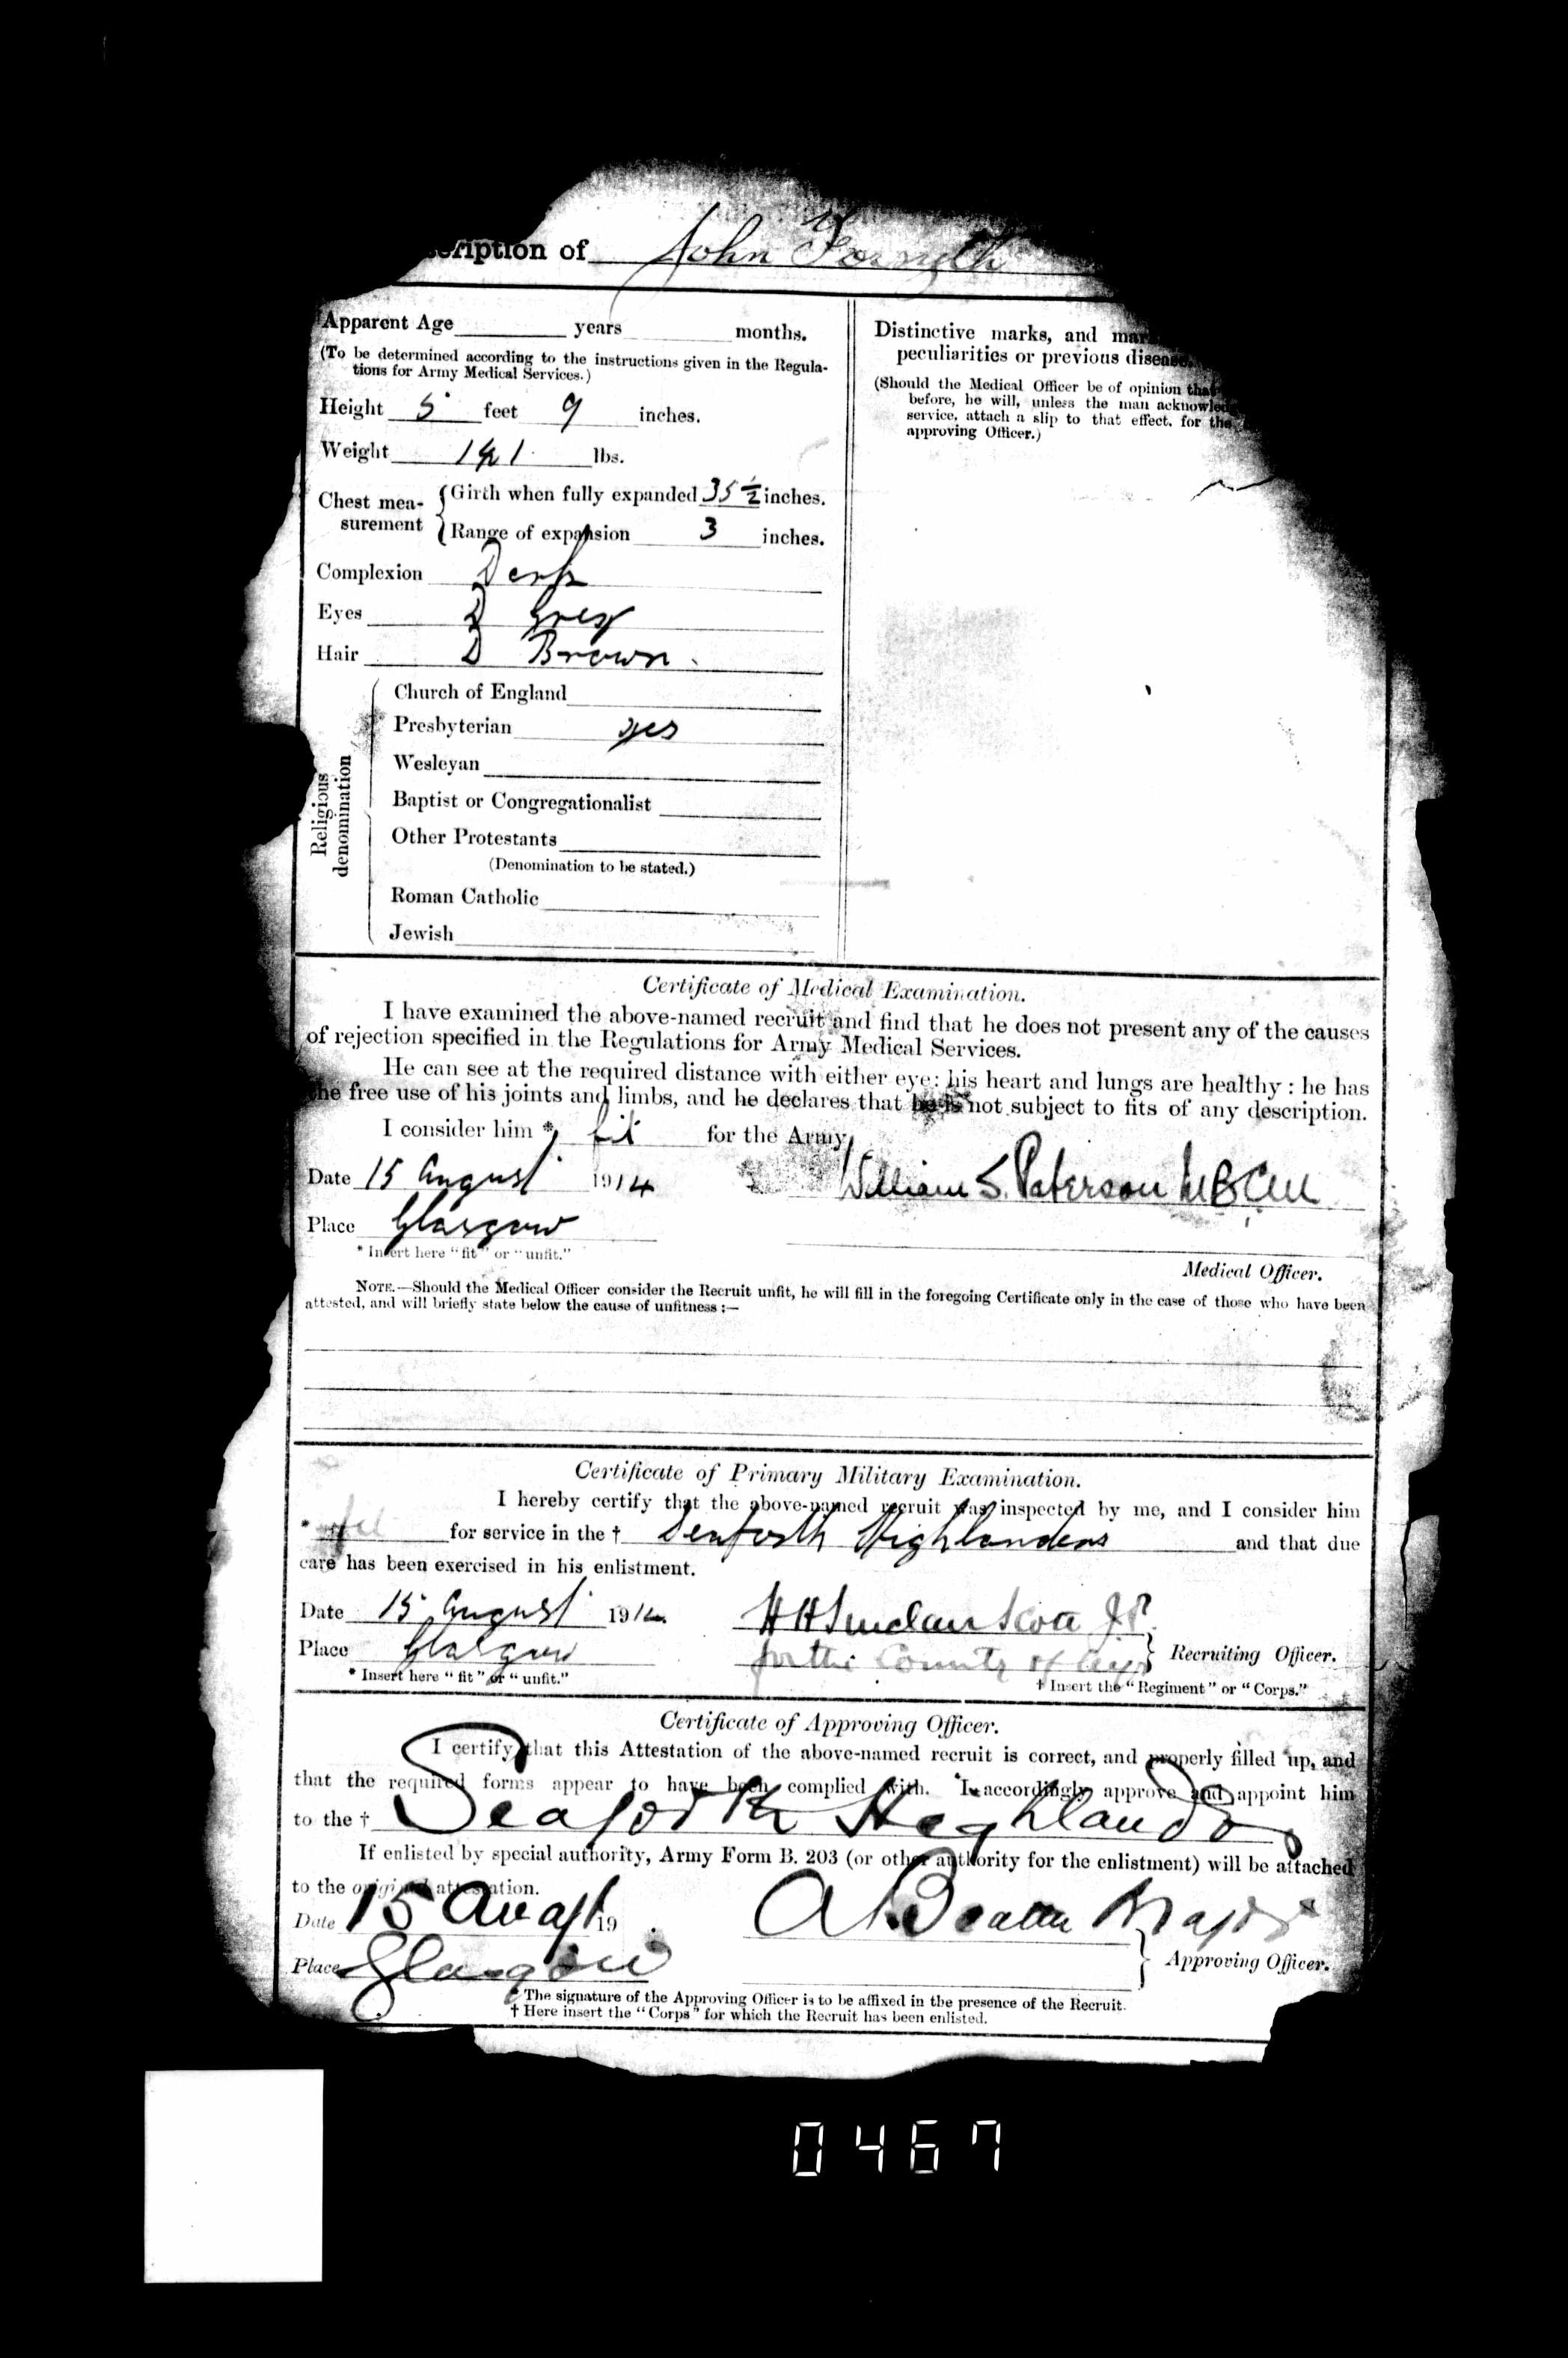 cription of John Forsyth
Apparent Age years months.
(To be determined according to the instructions given in the Regula-
tions for Army Medical Services.)
Height 5 feet 9 inches.
Weight lbs.
Chest mea-
surement
Girth when fully expanded 35 ½ inches.
Range of expansion 3 inches.
Complexion Dark
Eyes D Grey
Hair D Brown.
Religious
denomination
Church of England
Presbyterian yes
Wesleyan
Baptist or Congregationalist
Other Protestants
(Denomination to be stated.)
Roman Catholic
Jewish
Distinctive marks, and mar
peculiarities or previous disease.
(Should the Medical Officer be of opinion that
before, he will, unless the man acknowled
service, attach a slip to that effect, for the
approving Officer.)
Certificate of Medical Examination.
I have examined the above-named recruit and find that he does not present any of the causes
of rejection specified in the Regulations for Army Medical Services.
He can see at the required distance with either eye: his heart and lungs are healthy: he has
the free use of his joints and limbs, and he declares that he is not subject to fits of any description.
I consider him * fit for the Army
Date 15 August 1914 William S. Paterson MB CM
Place Glasgow
* Insert here "fit" or "unfit."
Medical Officer.
NOTE.—Should the Medical Officer consider the Recruit unfit, he will fill in the foregoing Certificate only in the case of those who have been
attested, and will briefly state below the cause of unfitness:—
Certificate of Primary Military Examination.
I hereby certify that the above-named recruit was inspected by me, and I consider him
* fit for service in the † Seaforth Highlanders and that due
care has been exercised in his enlistment.
Date 15 August 1914 H H Sinclair Scott J.P.
Place Glasgow for the County of Ayr Recruiting Officer.
* Insert here "fit" or "unfit."
† Insert the "Regiment" or "Corps."
Certificate of Approving Officer.
I certify that this Attestation of the above-named recruit is correct, and properly filled up, and
that the required forms appear to have been complied with. I accordingly approve and appoint him
to the † Seaforth Highlanders
If enlisted by special authority, Army Form B. 203 (or other authority for the enlistment) will be attached
to the original attestation.
Date 15 Augst 19 . Major
Place Glasgow Approving Officer.
* The signature of the Approving Officer is to be affixed in the presence of the Recruit.
† Here insert the "Corps" for which the Recruit has been enlisted.
0467